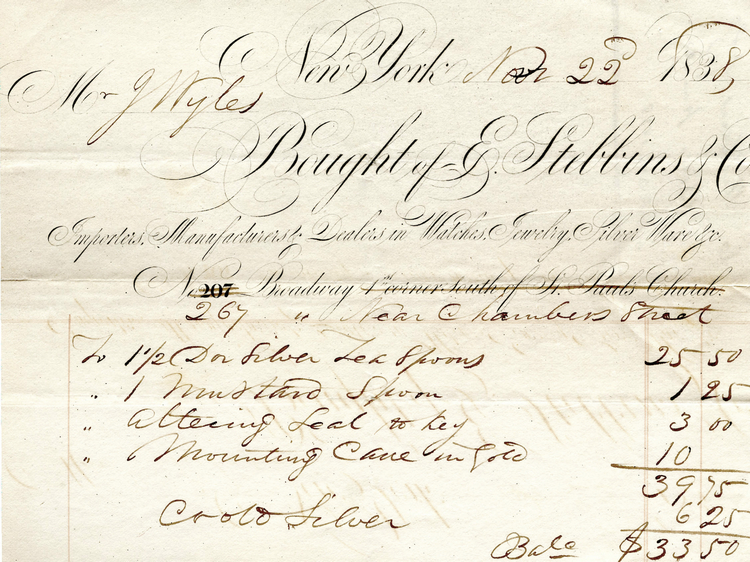 New York Nov 22d 1838,
Mr J Wyles
Bought of E. Stebbins & Co
Importers, Manufacturers & Dealers in Watches, Jewelry, Silver Ware &c.
No. 207 Broadway 1st corner south of St. Pauls Church.
267 " Near Chambers Street
To 1 1/2 Doz Silver Tea Spoons 25 50
" 1 Mustard Spoon 1 25
" Altering Seal to key 3 00
" Mounting Cane in Gold 10
39 75
Cr Old Silver 6 25
Balc $33 50